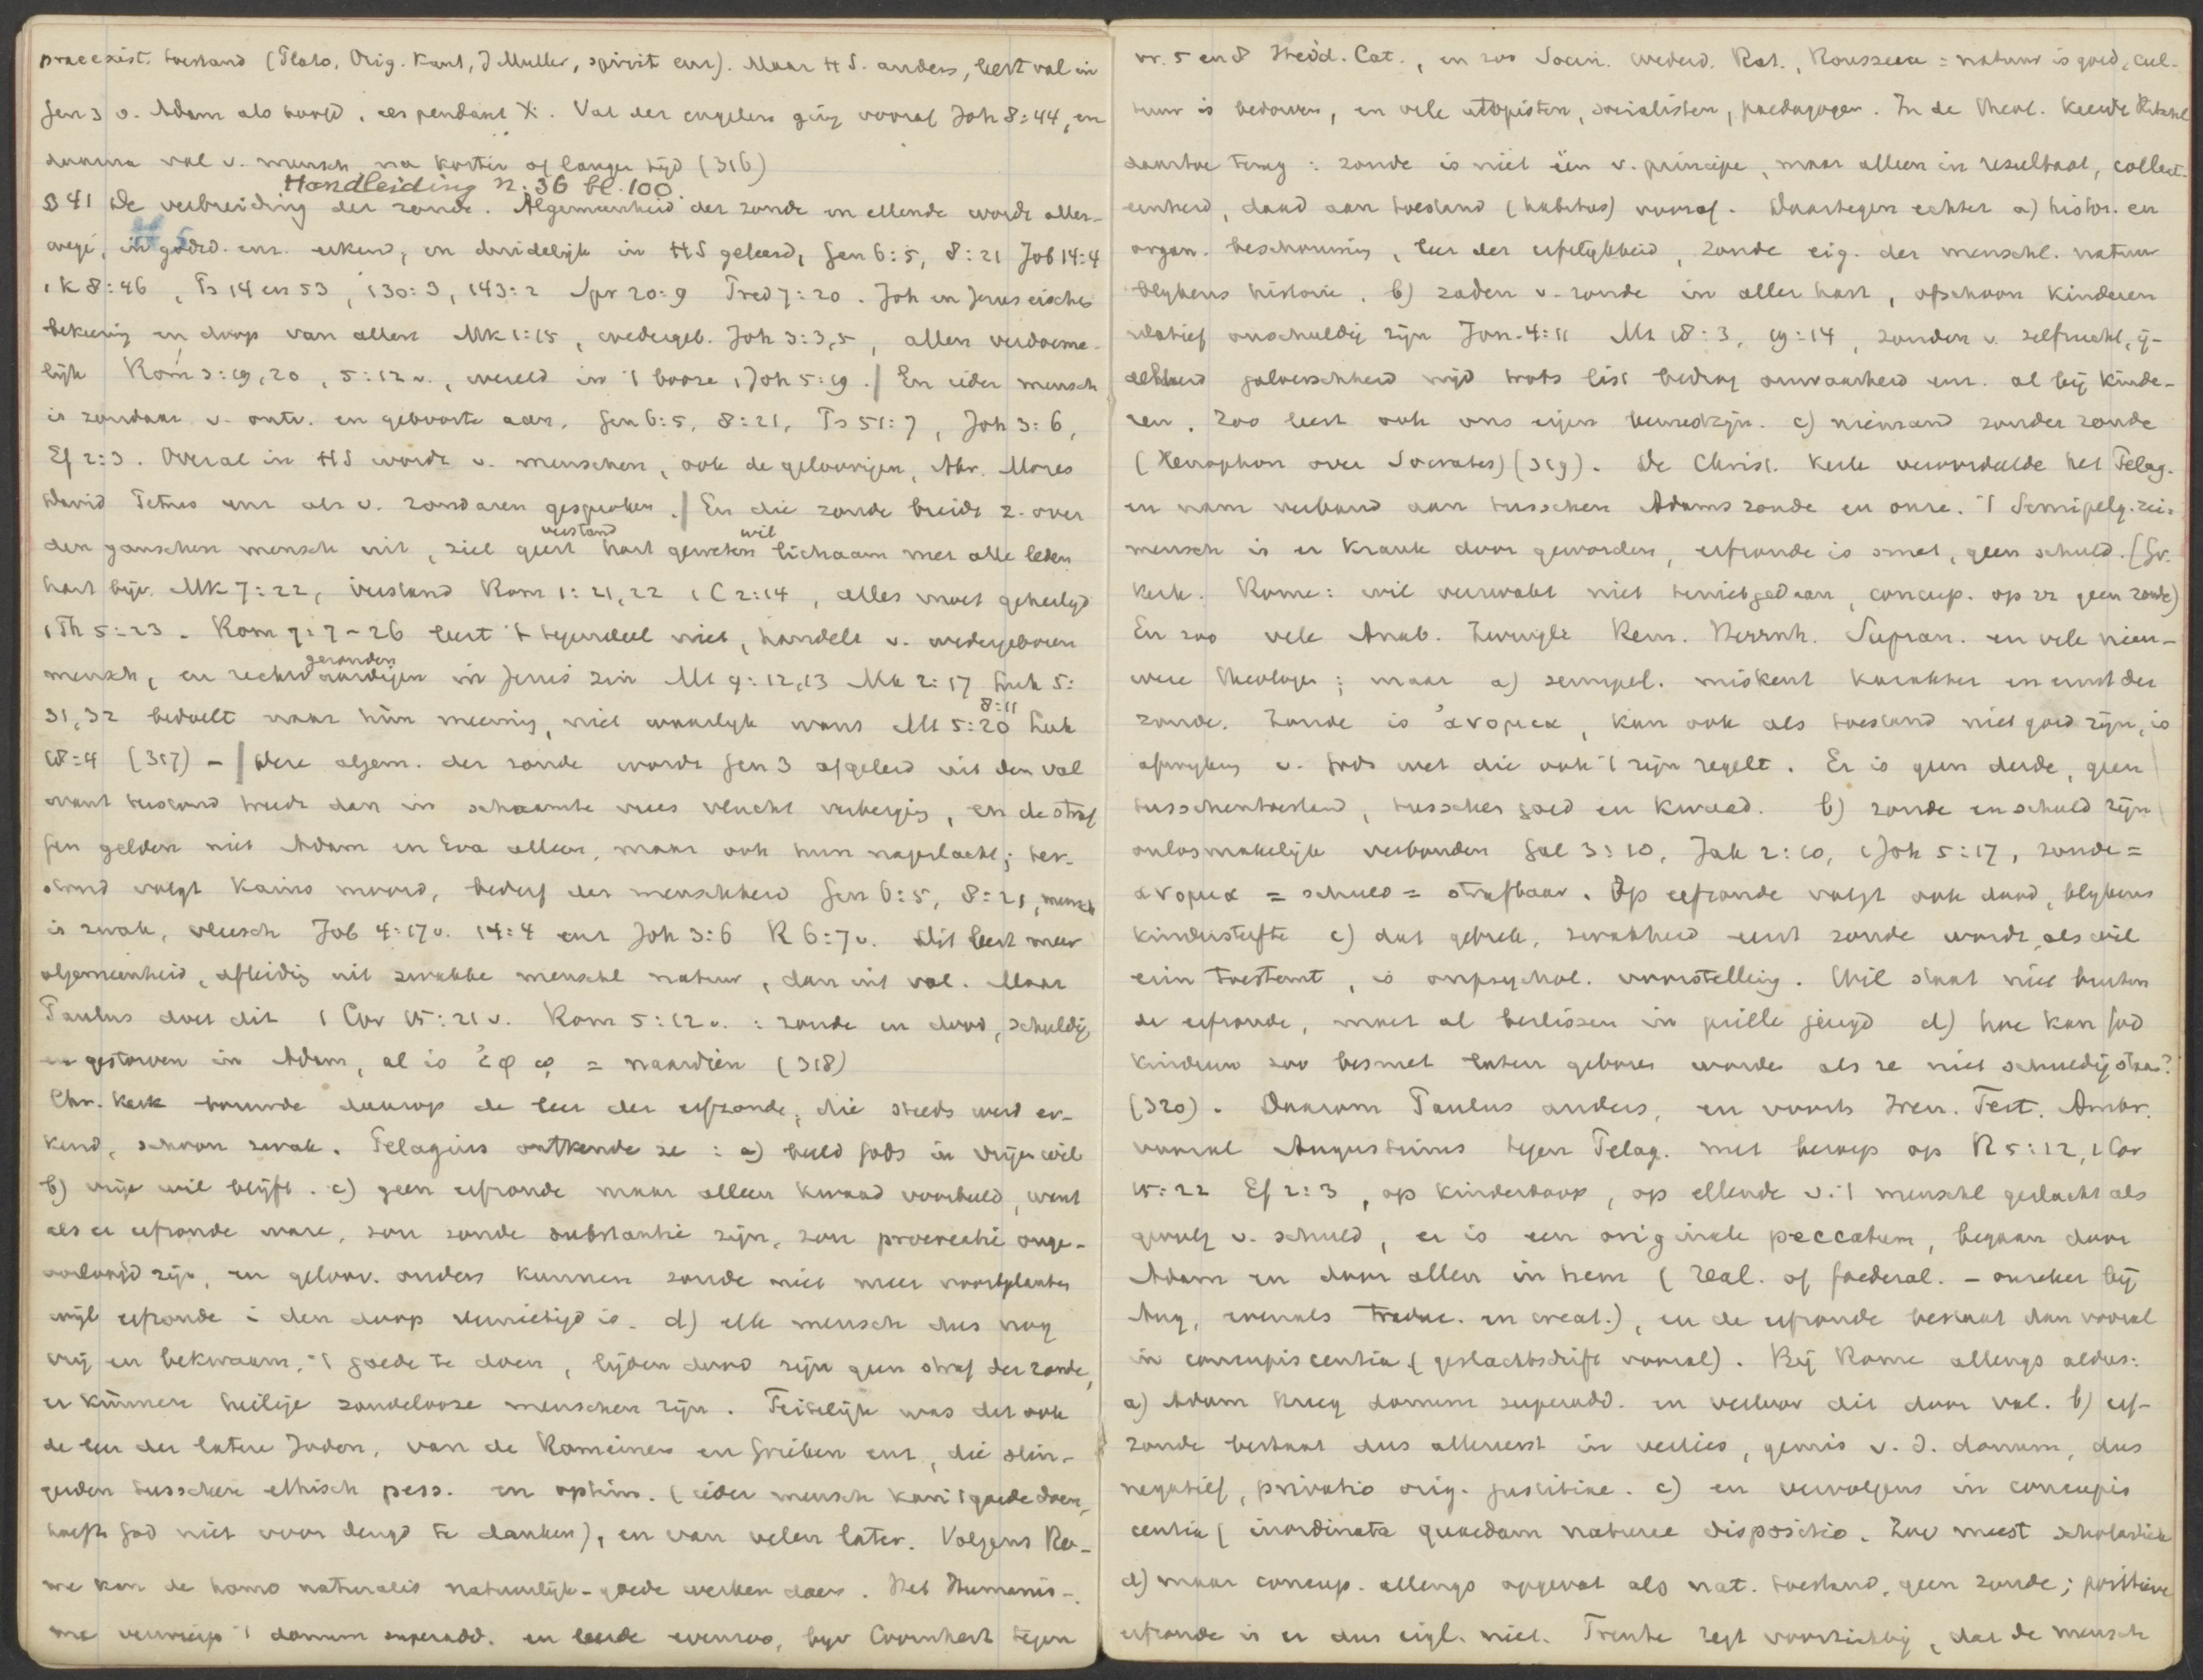 praeexist. toestand (Plato, Orig. Kant, J Muller, spirit enz). Maar H S. anders, leert val in
Gen 3 v. Adam als hoofd, als pendant X. Val der engelen ging vooraf Joh 8:44, en
daarna val v. mensch na korter of langer tijd (316)
Handleiding n. 36 bl. 100
§ 41 De verbreiding der zonde. Algemeenheid der zonde en ellende wordt aller-
wege, in godsd. enz. erkend, en duidelijk in HS geleerd, Gen 6:5, 8:21 Job 14:4
1 K 8:46, Ps 14 en 53, 130:3, 143:2 Spr 20:9 Pred 7:20. Joh en Jezus eischen
bekeering en doop van allen Mk 1:15, wedergeb. Joh 3:3,5, allen verdoeme-
lijk Rom 3:19,20, 5:12 v., wereld in 't booze 1 Joh 5:19. | En ieder mensch
is zondaar v. ontv. en geboorte aan, Gen 6:5, 8:21, Ps 51:7, Joh 3:6,
Ef 2:3. Overal in HS wordt v. menschen, ook de geloovigen, Abr. Mozes
David Petrus enz als v. zondaren gesproken. | En die zonde breidt z. over
den ganschen mensch uit, ziel geest verstand hart geweten wil lichaam met alle leden
hart bijv. Mk 7:22, verstand Rom 1:21,22 1 C 2:14, alles moet geheiligd
1 Th 5:23. Rom 7:7-26 leert 't tegendeel niet, handelt v. wedergeboren
mensch, en gezonden rechtvaardigen in Jezus zin Mt 9:12,13 Mk 2:17 Luk 5:
31,32 bedoelt naar hun meening, niet waarlijk want Mt 5:20 8:11 Luk
18:4 (317) - | Deze algem. der zonde wordt Gen 3 afgeleid uit den val
want toestand treedt dan in schaamte vrees vlucht verberging, en de straf
fen gelden niet Adam en Eva alleen, maar ook hun nageslacht; ter-
stond volgt Kains moord, bederf der menschheid Gen 6:5, 8:21, mensch
is zwak, vleesch Job 4:17 v. 14:4 enz Joh 3:6 R 6:7 v. Dit leert meer
algemeenheid, afleiding uit zwakke menschl natuur, dan uit val. Maar
Paulus doet dit 1 Cor 15:21 v. Rom 5:12 v.: zonde en dood, schuldig
en gestorven in Adam, al is ἐφ ᾧ = naardien (318)
Chr. kerk bouwde daarop de leer der erfzonde, die steeds werd er-
kend, schoon zwak. Pelagius ontkende ze: a) beeld Gods in vrijen wil
b) vrije wil blijft. c) geen erfzonde maar alleen kwaad voorbeeld, want
als er erfzonde ware, zou zonde substantie zijn, zou procreatie onge-
oorloofd zijn, en geloov. ouders kunnen zonde niet meer voortplanten
wijl erfzonde i den doop vernietigd is. d) elk mensch dus nog
vrij en bekwaam, 't goede te doen, lijden dood zijn geen straf der zonde,
er kunnen heilige zondelooze menschen zijn. Feitelijk was dit ook
de leer der latere Joden, van de Romeinen en Grieken enz, die slin-
gerden tusschen ethisch pess. en optim. (ieder mensch kan 't goede doen,
hoeft God niet voor deugd te danken), en van velen later. Volgens Ro-
me kan de homo naturalis natuurlijk-goede werken doen. Het Humanis-
me verwierp 't donum superadd. en leerde evenzoo, bijv Coornhert tegen
vr. 5 en 8 Heid. Cat., en zoo Socin. Wederd. Rat., Rousseau = natuur is goed, cul-
tuur is bedorven, en vele utopisten, socialisten, paedagogen. In de theol. keerde Ritschl
daartoe terug: zonde is niet één v. principe, maar alleen in resultaat, collect.
eenheid, daad aan toestand (habitus) vooraf. Daartegen echter a) histor. en
organ. beschouwing, leer der erfelijkheid, zonde eig. der menschl. natuur
blijkens historie. b) zaden v. zonde in aller hart, ofschoon kinderen
relatief onschuldig zijn Jon. 4:11 Mt 18:3, 19:14, zonden v. zelfzucht, ij-
delheid jalouschheid nijd trots list bedrog onwaarheid enz. al bij kinde-
ren. Zoo leert ook ons eigen bewustzijn. c) niemand zonder zonde
(Xenophon over Socrates) (319). De Christ. kerk veroordeelde het Pelag.
en nam verband aan tusschen Adams zonde en onze. 't Semipelg. zei:
mensch is er krank door geworden, erfzonde is smet, geen schuld. (Gr.
kerk. Rome: wil verzwakt niet tenietgedaan, concup. op zz geen zonde)
En zoo vele Anab. Zwingli Rem. Herrnh. Supran. en vele nieu-
were theologen; maar a) semipel. miskent karakter en ernst der
zonde. Zonde is ἀνομια, kan ook als toestand niet goed zijn, is
afwijking v. Gods wet die ook 't zijn regelt. Er is geen derde, geen
tusschentoestand, tusschen goed en kwaad. b) zonde en schuld zijn
onlosmakelijk verbonden Gal 3:10, Jak 2:10, 1 Joh 5:17, zonde =
ανομια = schuld = strafbaar. Op erfzonde volgt ook dood, blijkens
kindersterfte c) dat gebrek, zwakheid eerst zonde wordt, als wil
erin toestemt, is onpsychol. voorstelling. Wil staat niet buiten
de erfzonde, moet al beslissen in prille jeugd d) hoe kan God
kinderen zoo besmet laten geboren worden als ze niet schuldig staan?
(320). Daarom Paulus anders, en voorts Iren. Tert. Ambr.
vooral Augustinus tegen Pelag. met beroep op R 5:12, 1 Cor
15:22 Ef 2:3, op kinderdoop, op ellende v. 't menschl geslacht als
gevolg v. schuld, er is een originale peccatum, begaan door
Adam en door allen in hem (real. of foederal. - onzeker bij
Aug, evenals traduc. en creat.), en de erfzonde bestaat dan vooral
in concupiscentia (geslachtsdrift vooral). Bij Rome allengs aldus:
a) Adam kreeg donum superadd. en verloor dit door val. b) erf-
zonde bestaat dus allereerst in verlies, gemis v. d. donum, dus
negatief, privatio orig. justitiae. c) en vervolgens in concupis
centia (inordinata quaedam naturae dispositio. Zoo meest scholastiek
d) maar concup. allengs opgevat als nat. toestand, geen zonde; positieve
erfzonde is er dus eigl. niet. Trente zegt voorzichtig, dat de mensch